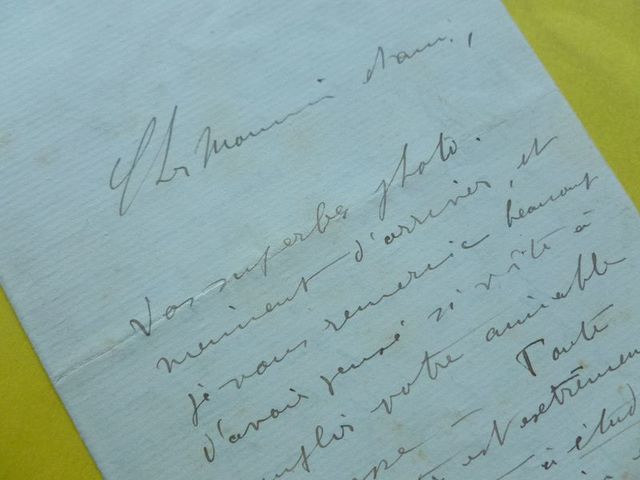 Cher Monsieur et ami,
Vos superbes photo.
m'arrivent d'arriver, et
je vous remercie beaucoup
d'avoir pensé si vite à
votre aimable
Toute
est extrêmem
à étud